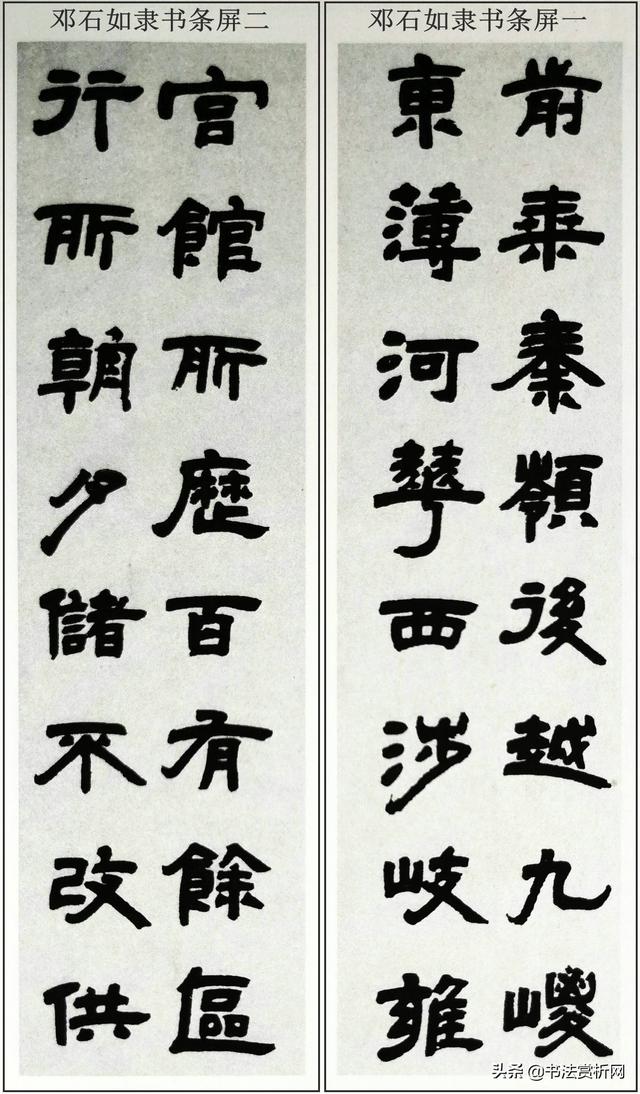 邓石如隶书条屏一
前乘秦嶺後越九嵕
東薄河華西涉岐雍
邓石如隶书条屏二
宮館所歷百有餘區
行所朝夕儲不改供
头条 @书法赏析网